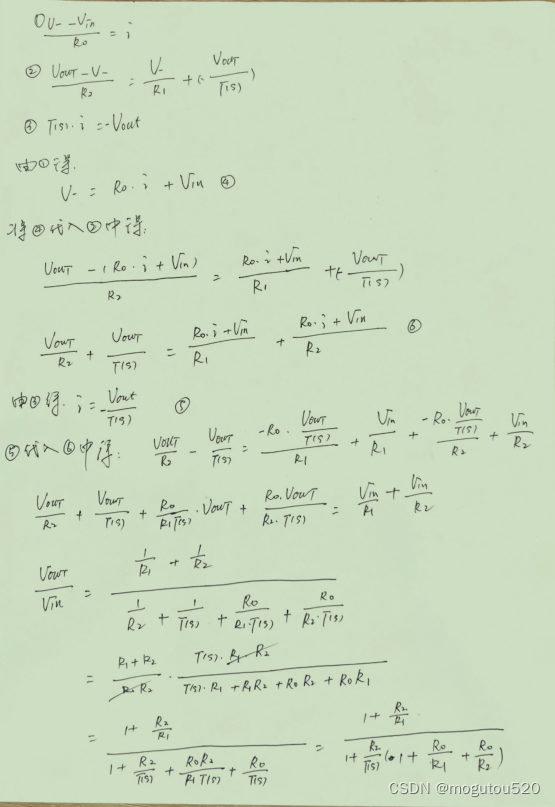 ① (V- - Vin)/R0 = i
② (VOUT - V-)/R2 = V-/R1 + (-VOUT/T(S))
③ T(S)·i = -Vout
由①得:
V- = R0·i + Vin ④
将④代入②中得:
(VOUT - (R0·i + Vin))/R2 = (R0·i + Vin)/R1 + (-VOUT/T(S))
VOUT/R2 + VOUT/T(S) = (R0·i + Vin)/R1 + (R0·i + Vin)/R2 ⑥
由③得: i = -Vout/T(S) ⑤
⑤代入⑥中得: VOUT/R2 - VOUT/T(S) = (-R0·VOUT/T(S))/R1 + Vin/R1 + (-R0·VOUT/T(S))/R2 + Vin/R2
VOUT/R2 + VOUT/T(S) + R0/(R1T(S))·VOUT + R0·VOUT/(R2·T(S)) = Vin/R1 + Vin/R2
VOUT/Vin = (1/R1 + 1/R2)/(1/R2 + 1/T(S) + R0/(R1·T(S)) + R0/(R2·T(S)))
= (R1 + R2)/(R1 R2) · (T(S)·R1·R2)/(T(S)·R1 + R1R2 + R0R2 + R0R1)
= (1 + R2/R1)/(1 + R2/T(S) + R0R2/(R1T(S)) + R0/T(S)) = (1 + R2/R1)/(1 + R2/T(S)(1 + R0/R1 + R0/R2))
CSDN @mogutou520